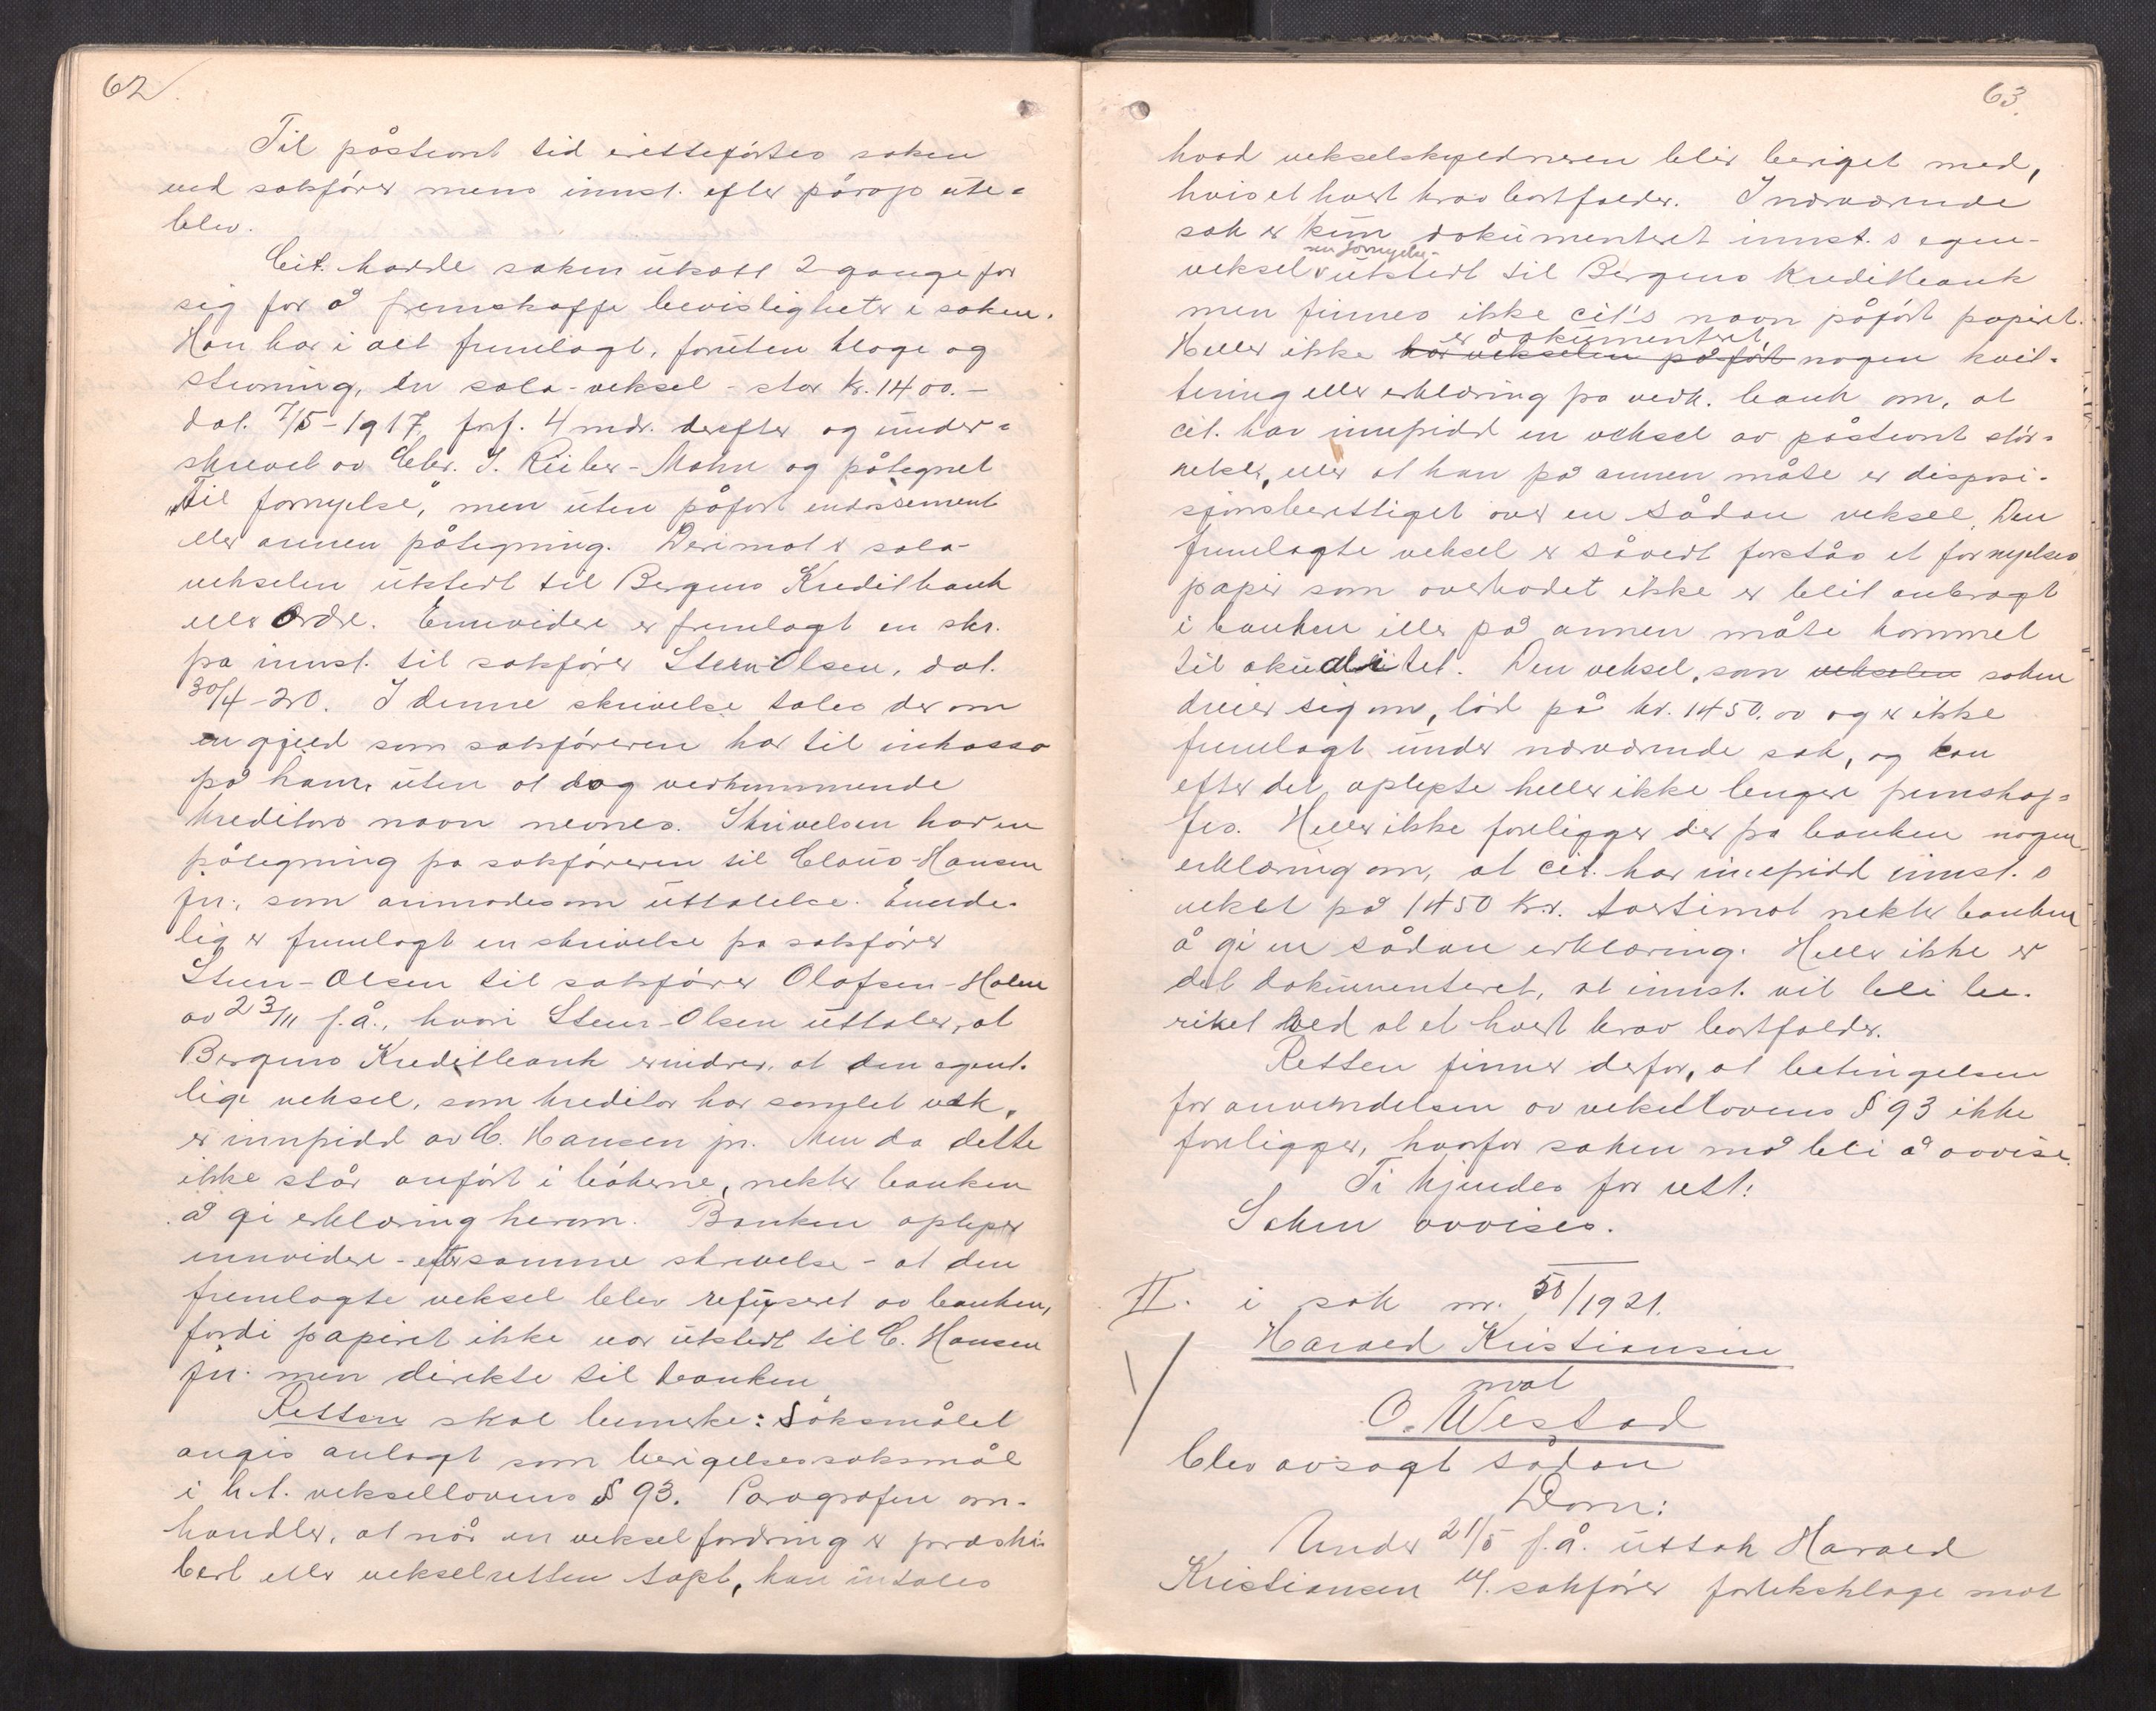 62
Til påstevnt tid iretteførtes saken
ved sakfører mens innst. efter pårop ute=
blev.
Cit. hadde saken utsatt 2 gange for
sig for å fremskaffe bevisligheter i saken.
Han har i alt fremlagt, foruten klage og
stevning, en sola-veksel - stor kr. 1400.-
dat. 7/5-1917, forf. 4 mdr. derefter og under=
skrevet av Chr. I. Rieber-Mohn og påtegnet
"til fornyelse", men uten påført endossement
eller annen påtegning. Derimot er sola-
vekselen utstedt til Bergens Kreditbank
eller Ordre. Ennvidere er fremlagt en skr.
fra innst. til sakfører Steen-Olsen, dat.
30/4-20. I denne skrivelse tales der om
en gjeld som sakføreren har til inkasso
på ham, uten at dog vedkommende
kreditors navn nevnes. Skrivelsen har en
påtegning fra sakføreren til Claus Hansen
jr., som anmodes om uttalelse. Ende-
lig er fremlagt en skrivelse fra sakfører
Steen-Olsen til sakfører Olafsen-Holm
av 23/11 f.å., hvori Steen-Olsen uttaler, at
Bergens Kreditbank erindrer, at den egent-
lige veksel, som kreditor har somlet vek,
er innfridd av C. Hansen jr. Men da dette
ikke står anført i bøkerne, nekter banken
å gi erklæring herom. Banken oplyser
ennvidere - efter samme skrivelse - at den
fremlagte veksel blev refuseret av banken,
fordi papiret ikke var utstedt til C. Hansen
jr. men direkte til banken
Retten skal bemerke: Søksmålet
angis anlagt som berigelsessøksmål
i h.t. veksellovens § 93. Paragrafen om-
handler, at når en vekselfordring er præskri-
bert eller vekselretten tapt, kan intales
63.
hvad vekselskyldneren blir beriget med,
hvis et hvert krav bortfalder. I nærværende
sak er kun dokumenteret innst.s egen-
veksel
utstedt til Bergens Kreditbank
men finnes ikke cit's navn påført papiret.
er dokumenteret
Heller ikke har vekselen påført nogen kvit-
tering eller erklæring fra vedk. bank om, at
cit. har innfridd en veksel av påstevnt stør-
relse, eller at han på annen måte er disposi-
sjonsberettiget over en sådan veksel. Den
fremlagte veksel er såvidt forståes et fornyelses
papir som overhodet ikke er blit anbragt
i banken eller på annen måte kommet
til akualitet. Den veksel, som vekselen saken
dreier sig om, lød på kr. 1450.00 og er ikke
fremlagt under nærværende sak, og kan
efter det oplyste heller ikke lenger fremskaf=
fes. Heller ikke foreligger der fra banken nogen
erklæring om, at cit. har innfridd innst.s
veksel på 1450 kr. tvertimot nekter banken
å gi en sådan erklæring. Heller ikke er
det dokumenteret, at innst. vil bli be-
riket ved at et hvert krav bortfalder.
Retten finner derfor, at betingelsen
for anvendelsen av veksellovens § 93 ikke
foreligger, hvorfor saken må bli å avvise.
Ti kjendes for rett:
Saken avvises.
II. i sak nr. 58/1921.
Harald Kristiansen
mot
O. Westad
blev avsagt sådan
Dom:
Under 21/5 f.å. uttok Harald
Kristiansen v/ sakfører forliksklage mot